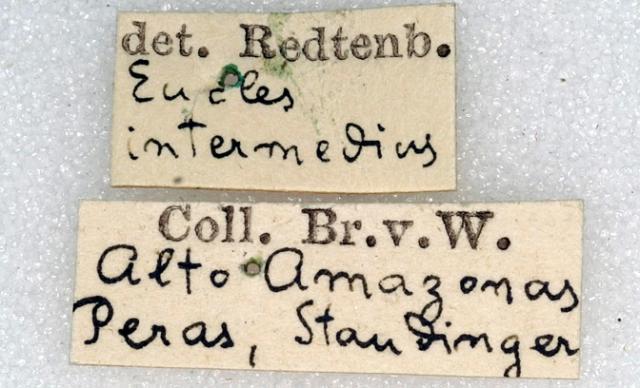 det. Redtenb.
Eucles
intermedius
Coll. Br.v.W.
Alto Amazonas
Peras, Staudinger